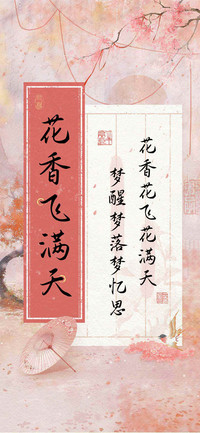 花香飞满天
花香花飞花满天
梦醒梦落梦忆思